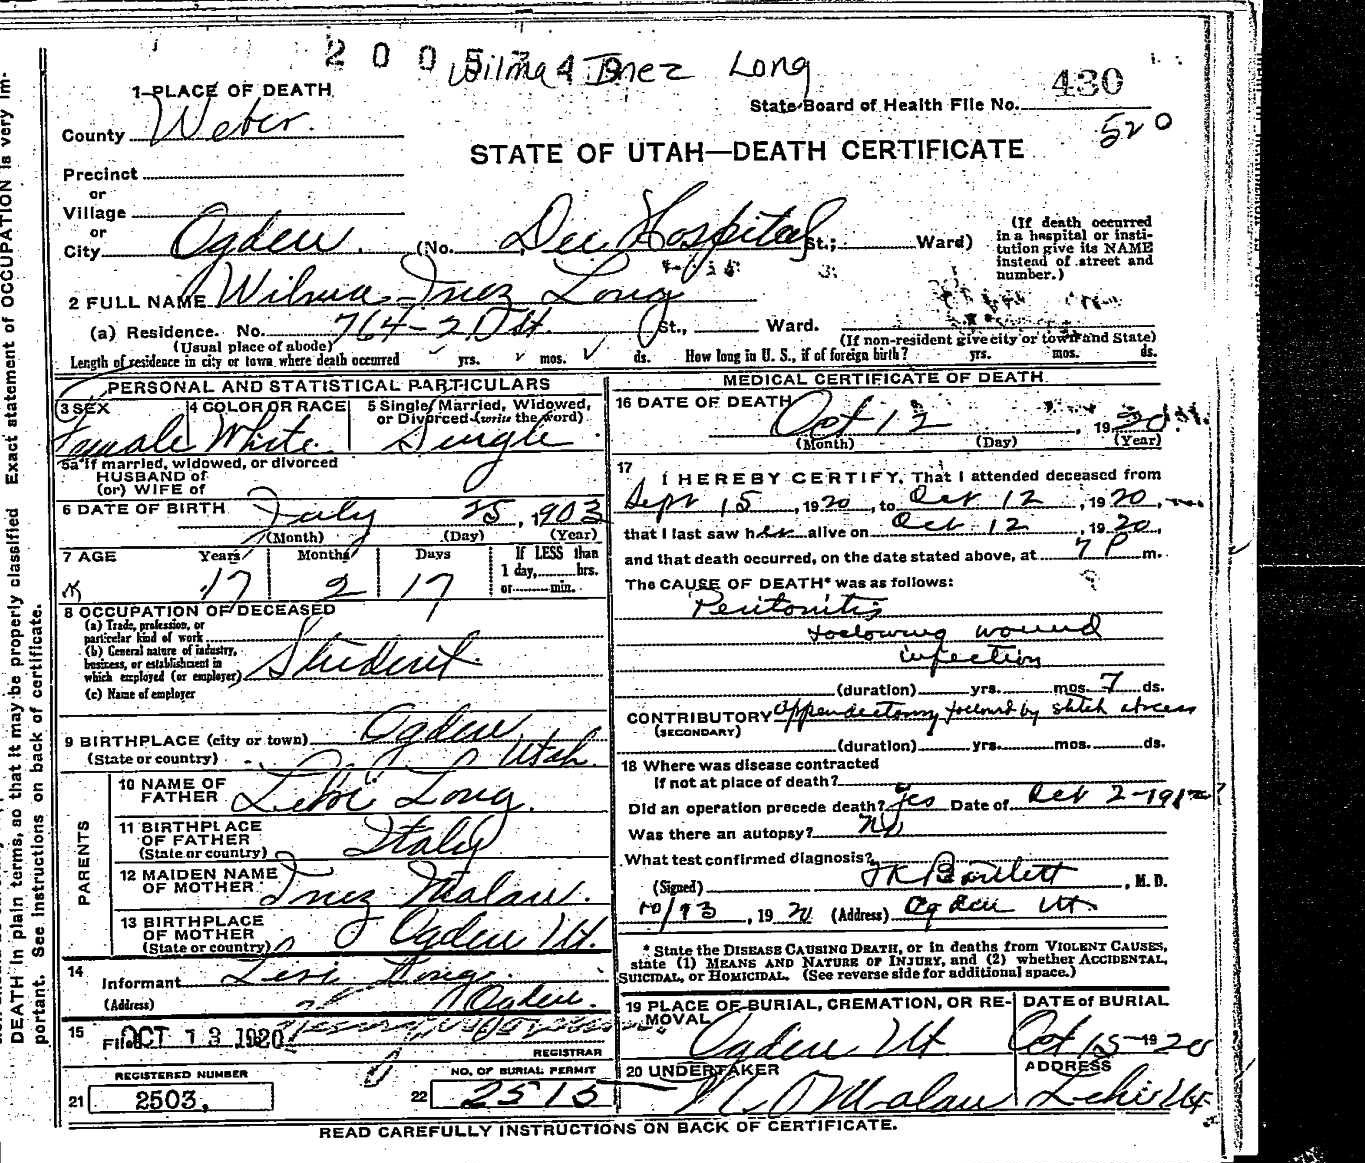 2 0 0 5
Wilma Inez Long
430
520
1—PLACE OF DEATH
State Board of Health File No.
County Weber.
STATE OF UTAH—DEATH CERTIFICATE
Precinct
or
Village
or
City Ogden (No. Dee Hospital St.; Ward)
(If death occurred in a hospital or institution give its NAME instead of street and number.)
2 FULL NAME Wilma Inez Long
(a) Residence. No. 764-20 St. St., Ward.
(Usual place of abode)
(If non-resident give city or town and State)
Length of residence in city or town where death occurred yrs. mos. ds. How long in U. S., if of foreign birth? yrs. mos. ds.
PERSONAL AND STATISTICAL PARTICULARS
3 SEX Female
4 COLOR OR RACE White
5 Single, Married, Widowed, or Divorced (write the word) Single
5a If married, widowed, or divorced
HUSBAND of
(or) WIFE of
6 DATE OF BIRTH July 25, 1903
(Month) (Day) (Year)
7 AGE Years 17 Months 2 Days 17
If LESS than 1 day, hrs. or min.
8 OCCUPATION OF DECEASED
(a) Trade, profession, or particular kind of work
(b) General nature of industry, business, or establishment in which employed (or employer)
Student
(c) Name of employer
9 BIRTHPLACE (city or town) Ogden
(State or country) Utah
PARENTS
10 NAME OF FATHER Long.
11 BIRTHPLACE OF FATHER (State or country) Italy
12 MAIDEN NAME OF MOTHER Inez Malan.
13 BIRTHPLACE OF MOTHER (State or country) Ogden Ut.
14 Informant Levi Long.
(Address) Ogden.
15 Filed OCT 13 1920
REGISTRAR
REGISTERED NUMBER
21 2503,
NO. OF BURIAL PERMIT
22 2515
MEDICAL CERTIFICATE OF DEATH
16 DATE OF DEATH Oct 12, 1920
(Month) (Day) (Year)
17 I HEREBY CERTIFY, That I attended deceased from
Sept 15, 1920, to Oct 12, 1920,
that I last saw her alive on Oct 12, 1920,
and that death occurred, on the date stated above, at 7 P m.
The CAUSE OF DEATH* was as follows:
Peritonitis
following wound
infection
(duration) yrs. mos. 7 ds.
CONTRIBUTORY appendectomy followed by stitch abscess
(SECONDARY)
(duration) yrs. mos. ds.
18 Where was disease contracted
if not at place of death?
Did an operation precede death? Yes Date of Oct 2-19
Was there an autopsy? no
What test confirmed diagnosis?
(Signed) Bartlett, M. D.
10/13, 1920 (Address) Ogden Ut
* State the DISEASE CAUSING DEATH, or in deaths from VIOLENT CAUSES, state (1) MEANS AND NATURE OF INJURY, and (2) whether ACCIDENTAL, SUICIDAL, or HOMICIDAL. (See reverse side for additional space.)
19 PLACE OF BURIAL, CREMATION, OR REMOVAL Ogden Ut
DATE of BURIAL Oct 15-1920
20 UNDERTAKER Malan
ADDRESS Lehi Ut
READ CAREFULLY INSTRUCTIONS ON BACK OF CERTIFICATE.
DEATH in plain terms, so that it may be properly classified Exact statement of OCCUPATION is very im-
portant. See instructions on back of certificate.